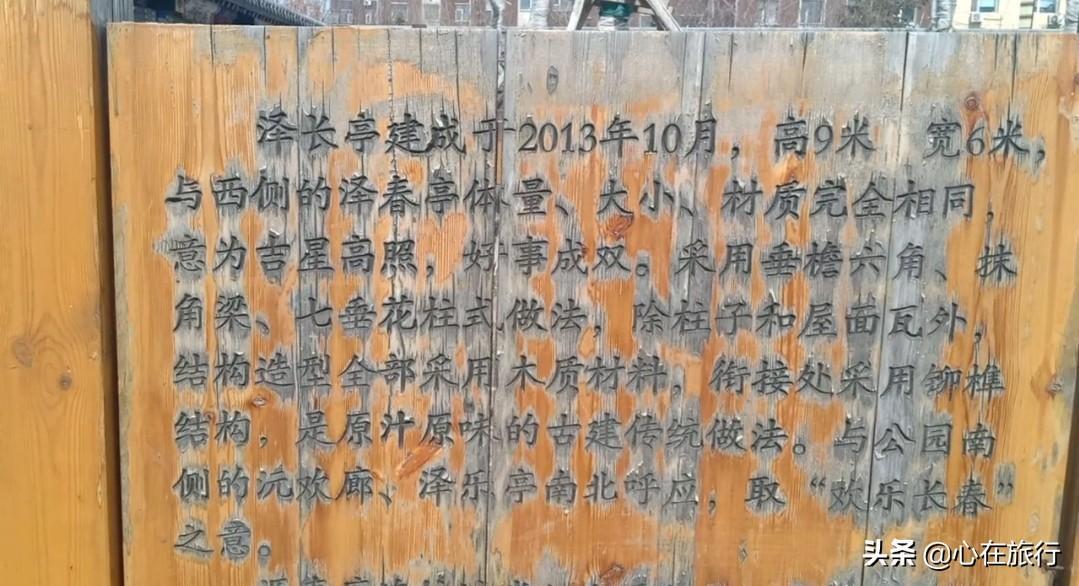 泽长亭建成于2013年10月，高9米 宽6米，
与西侧的泽春亭体量、大小、材质完全相同，
意为吉星高照，好事成双。采用垂檐六角、抹
角梁、七垂花柱式做法，除柱子和屋面瓦外，
结构造型全部采用木质材料，衔接处采用铆榫
结构，是原汁原味的古建传统做法。与公园南
侧的沅欢廊、泽乐亭南北呼应，取“欢乐长春”
之意。
头条 @心在旅行